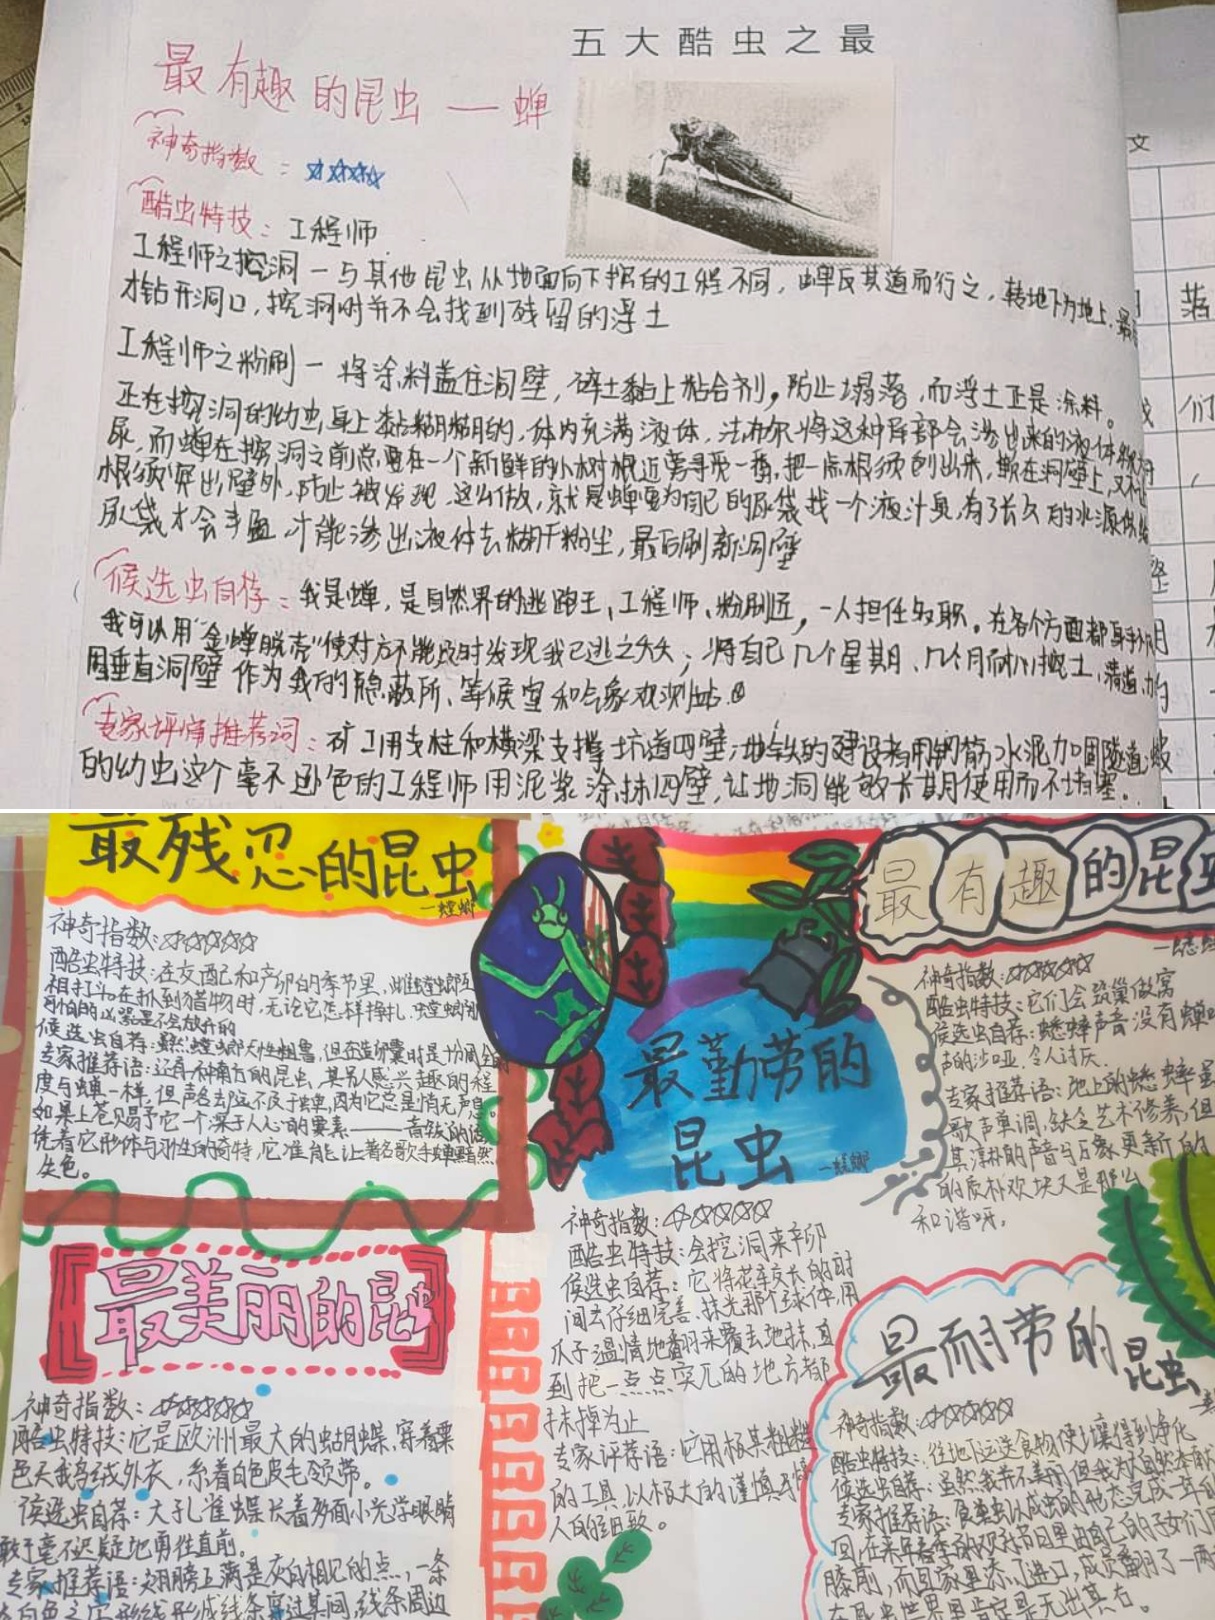 五大酷虫之最
最有趣的昆虫 — 蝉
神奇指数：☆☆☆☆
酷虫特技：工程师
工程师之挖洞 — 与其他昆虫从地面向下挖的工程不同，蝉反其道而行之，转地下为地上，最
才钻开洞口，挖洞时并不会找到残留的浮土
工程师之粉刷 — 将涂料盖住洞壁，碎土黏上粘合剂，防止塌落，而浮土正是涂料。
正在挖洞的幼虫身上黏糊糊的，体内充满液体，法布尔将这种尾部会渗出来的液体
尿，而蝉在挖洞之前总要在一个新鲜的小树根近旁寻觅一番，把一点根须刨出来，嵌在洞壁上，又不
根须突出壁外，防止被发现。这么做，就是蝉要为自己的尿袋找一个液汁臭，有了长久的水源供给
尿袋才会丰盈，才能渗出液体去糊干粉尘，最后刷新洞壁
候选虫自荐：我是蝉，是自然界的逃跑王、工程师、粉刷匠，一人担任多职。在各个方面都身手
我可以用“金蝉脱壳”使对方不能及时发现我已逃之夭夭；将自己几个星期、几个月耐心挖土、清道
困垂直洞壁作为我的隐蔽所、等候室和气象观测站。
专家评审推荐词：矿工用支柱和横梁支撑坑道四壁；地铁的建设者用钢筋水泥加固隧道；
的幼虫这个毫不逊色的工程师用泥浆涂抹四壁，让地洞能够长期使用而不堵塞。
文
落
们
最残忍的昆虫
—螳螂
神奇指数：☆☆☆☆☆
酷虫特技：在交配和产卵的季节里，雌螳螂
相打斗。在抓到猎物时，无论它怎样挣扎，螳螂那
可怕的凶器是不会放开的
候选虫自荐：虽然螳螂天性粗鲁，但在造卵囊时是十分
专家推荐语：还有一种南方的昆虫，其引人感兴趣的程
度与蝉一样，但声名却远不及于蝉，因为它总是悄无声息。
如果上苍赐予它一个深于人心的要素——音钹的话
凭着它形体与习性的奇特，它准能让著名歌手蝉黯然
失色。
最勤劳的
昆虫
—蜣螂
神奇指数：☆☆☆☆☆
酷虫特技：会挖洞来产卵
候选虫自荐：它将花车交长的时
间去仔细完善、抹光那个球体，用
爪子温情地翻来覆去地抹，直
到把一点点突兀的地方都
抹掉为止
专家评荐语：它用极其粗糙
的工具，以极大的谨慎
最有趣的昆虫
神奇指数：☆☆☆☆☆
酷虫特技：它们会筑巢做窝
候选虫自荐：蟋蟀声音没有蝉
声的沙哑，令人讨厌
专家推荐语：地上的蟋蟀虽
歌声单调，缺乏艺术修养，但
其淳朴的声音与万象更新的
的质朴欢快又是那么
和谐呀。
最美丽的昆虫
神奇指数：☆☆☆☆☆
酷虫特技：它是欧洲最大的蝴蝶，穿着栗
色天鹅绒外衣，系着白色皮毛领带。
候选虫自荐：大孔雀蝶长着多面小光学眼睛
敢于毫不迟疑地勇往直前。
专家推荐语：翅膀上满是灰白相见的点，一条
线条周边
最耐劳的昆虫
神奇指数：☆☆☆☆☆
酷虫特技：往地下运送食物使土壤得到净化
候选虫自荐：虽然我并不美丽，但我为大自然
专家推荐语：食粪虫以成虫的形态完成一年
回，在来年春季的欢孙节日里由自己的子女们
膝前，而且家里添丁进口，成员番羽了一两